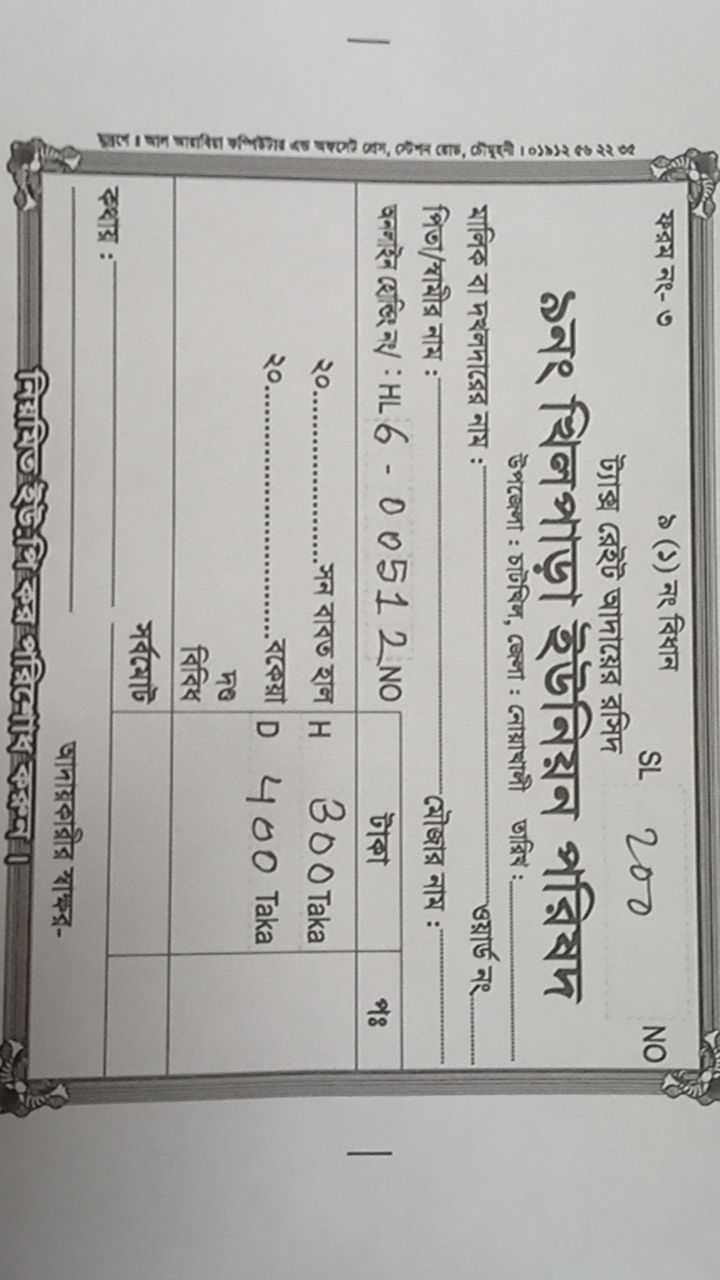 মুদ্রণে : আল আরাবিয়া কম্পিউটার এন্ড অফসেট প্রেস, স্টেশন রোড, চৌমুহনী । ০১৯১২ ৫৬ ২২ ৩৫
ফরম নং- ৩ ৯ (১) নং বিধান SL 200 NO
ট্যাক্স রেইট আদায়ের রসিদ
৯নং খিলপাড়া ইউনিয়ন পরিষদ
উপজেলা : চাটখিল, জেলা : নোয়াখালী তারিখ :
মালিক বা দখলদারের নাম : ওয়ার্ড নং
পিতা/স্বামীর নাম : মৌজার নাম :
অনলাইন হোল্ডিং নং/ : HL 6 - 00512 NO টাকা পঃ
২০....................সন বাবত হাল H 300 Taka
২০..............................বকেয়া D 400 Taka
দণ্ড
বিবিধ
সর্বমোট
কথায় :
আদায়কারীর স্বাক্ষর-
নিয়মিত ইউ.পি কর পরিশোধ করুন।